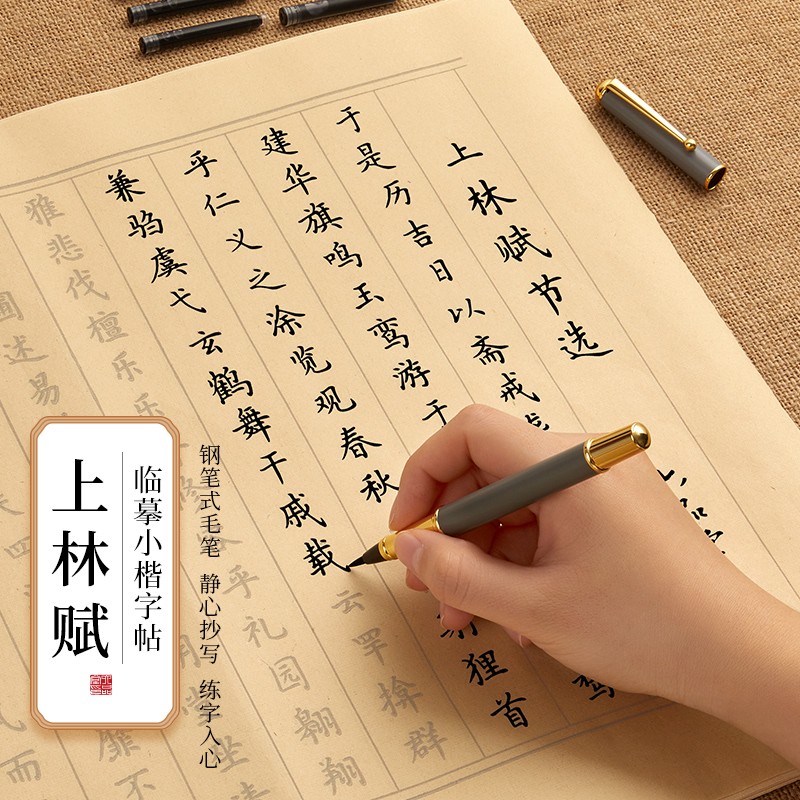 上林赋节选
于是历吉日以斋戒
建华旗鸣玉鸾游于
乎仁义之涂览观春秋
狸首
兼驺虞弋玄鹤舞干戚载云罕揜群
雅悲伐檀乐乐
修
乎礼园翱翔
圃述易
坐
靡不
而
上林赋
临摹小楷字帖
钢笔式毛笔 静心抄写 练字入心